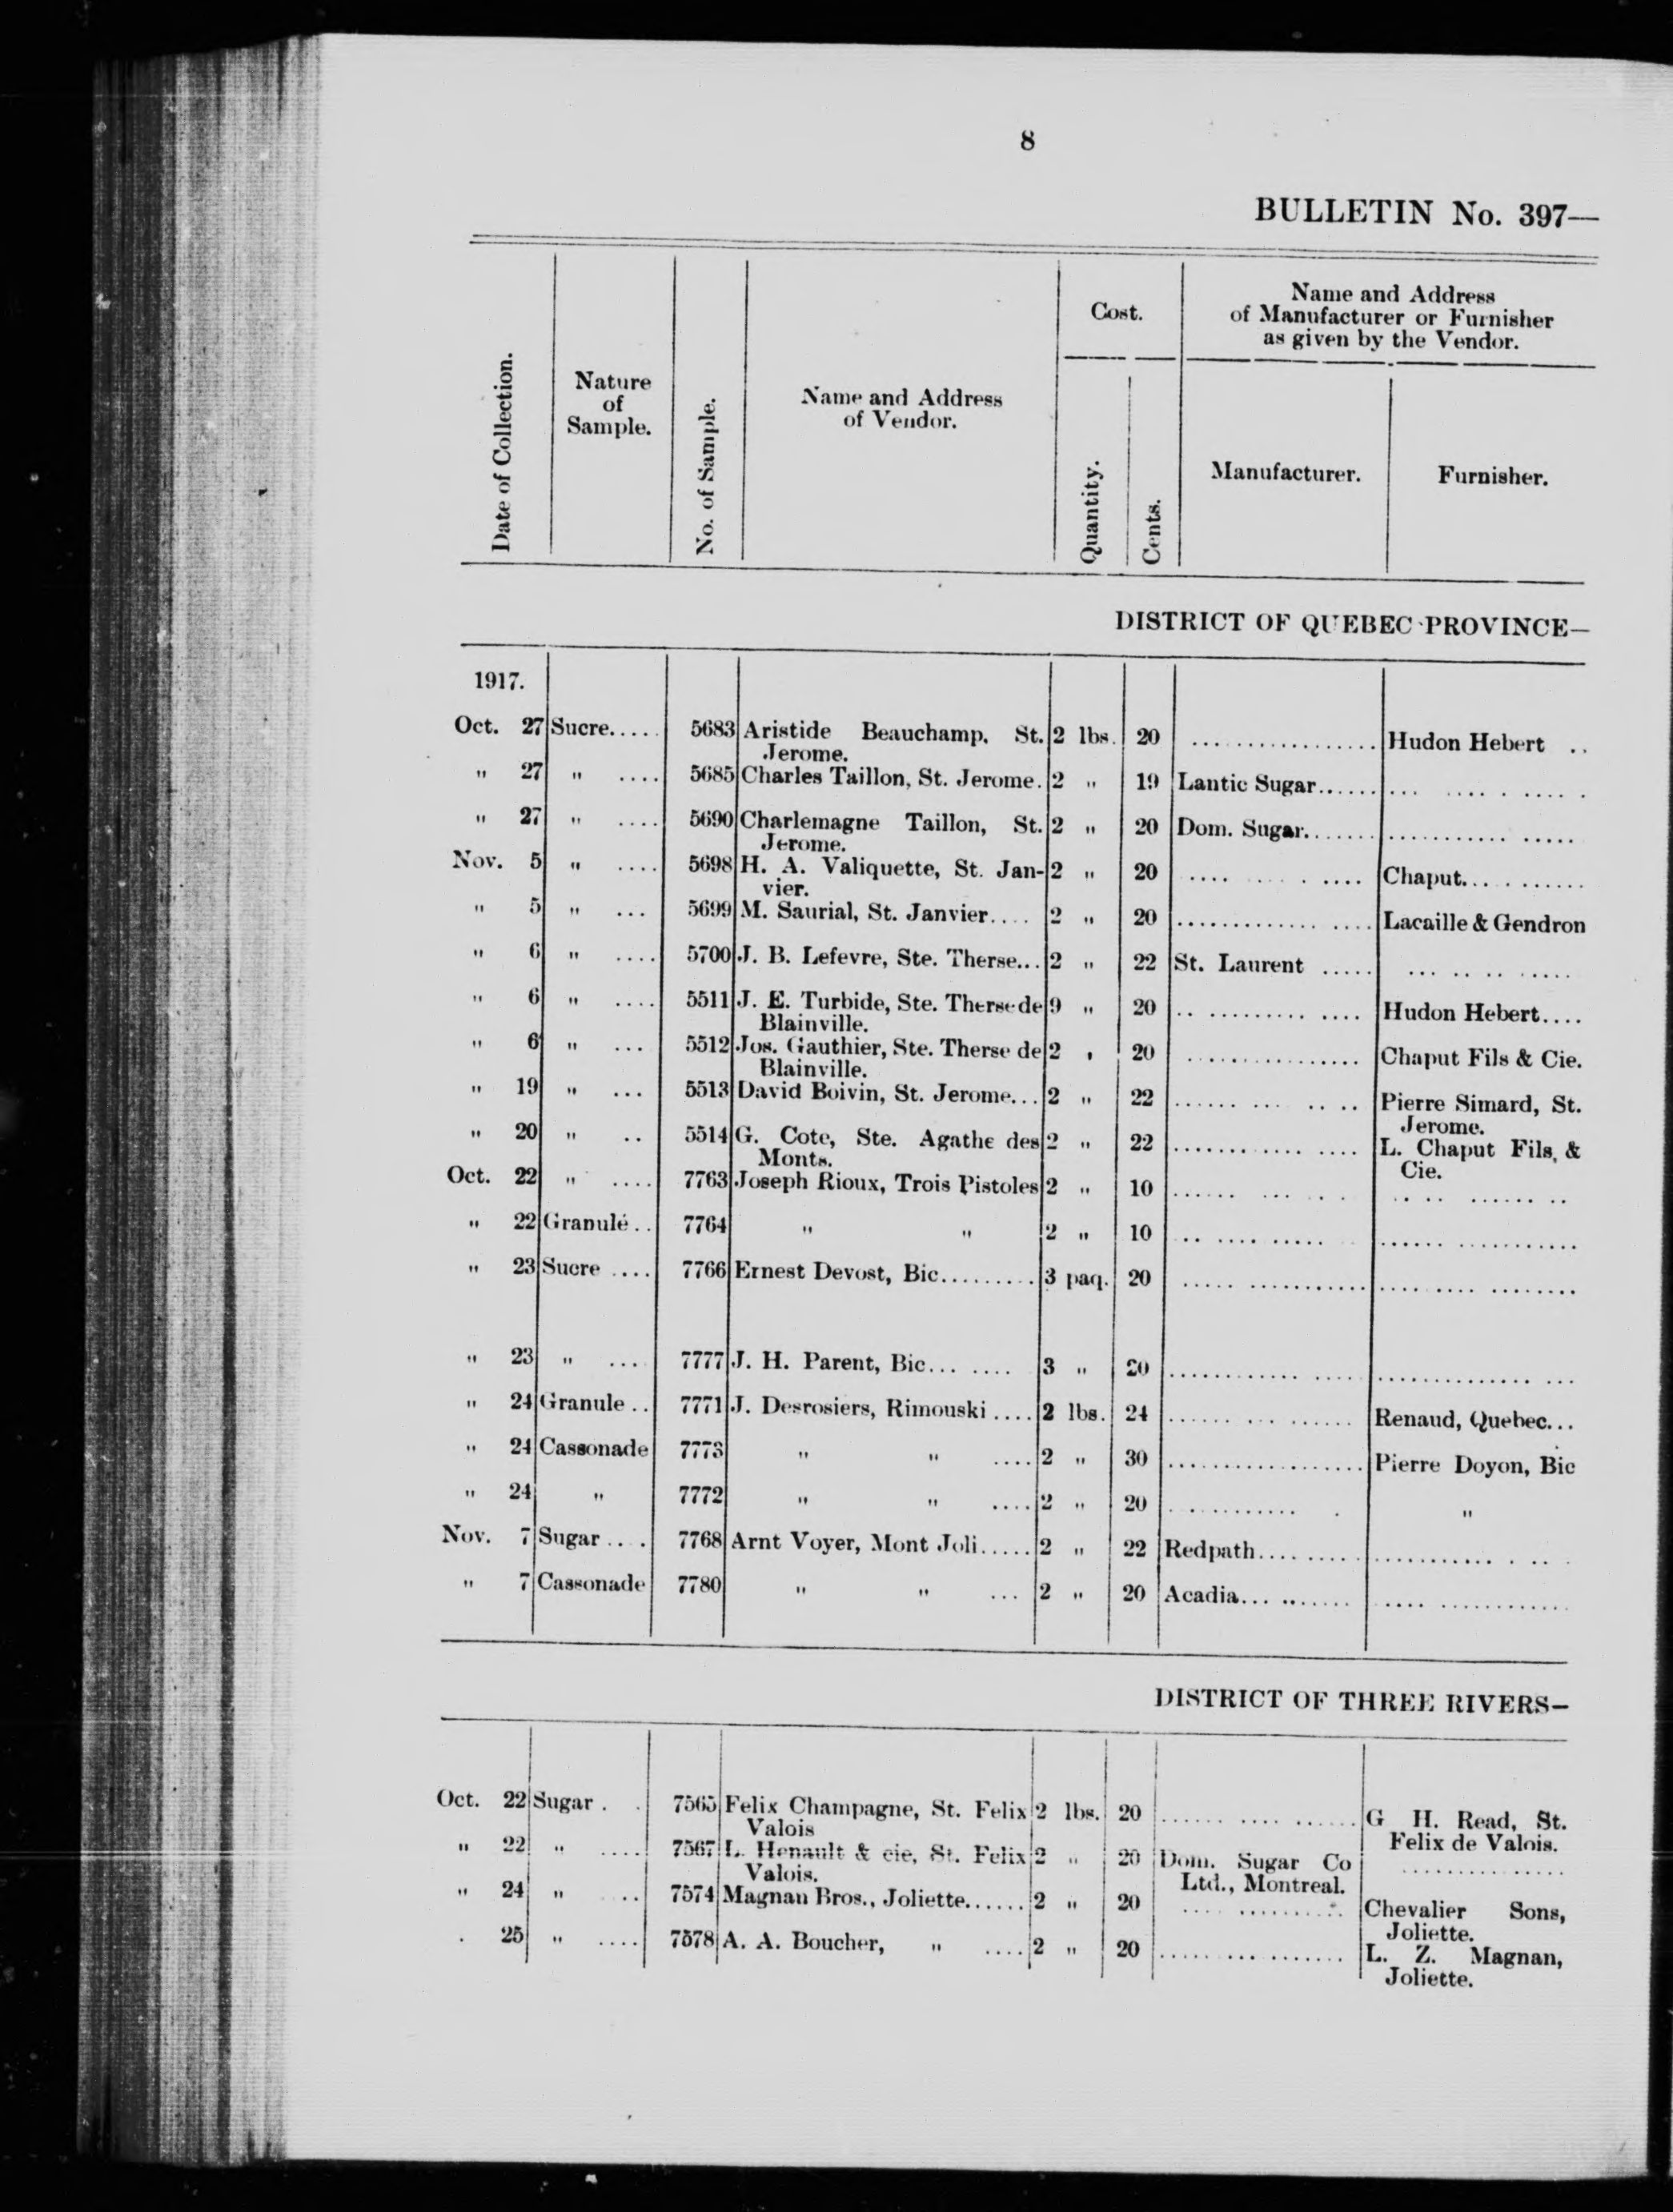 8
BULLETIN No. 397—
Date of Collection.
Nature
of
Sample.
No. of Sample.
Name and Address
of Vendor.
Cost.
Quantity.
Cents.
Name and Address
of Manufacturer or Furnisher
as given by the Vendor.
Manufacturer.
Furnisher.
DISTRICT OF QUEBEC PROVINCE—
1917.
Oct. 27 Sucre.... 5683 Aristide Beauchamp, St. 2 lbs. 20 ................ Hudon Hebert ..
Jerome.
" 27 " .... 5685 Charles Taillon, St. Jerome. 2 " 19 Lantic Sugar...... ... ..... . .....
" 27 " .... 5690 Charlemagne Taillon, St. 2 " 20 Dom. Sugar....... ............ .....
Jerome.
Nov. 5 " .... 5698 H. A. Valiquette, St. Jan- 2 " 20 .... . .. . .... Chaput... . .......
vier.
" 5 " ... 5699 M. Saurial, St. Janvier.... 2 " 20 ............. .... Lacaille & Gendron
" 6 " .... 5700 J. B. Lefevre, Ste. Therse... 2 " 22 St. Laurent ..... ... .. .. .....
" 6 " .... 5511 J. E. Turbide, Ste. Therse de 9 " 20 .. .......... .... Hudon Hebert....
Blainville.
" 6 " ... 5512 Jos. Gauthier, Ste. Therse de 2 , 20 ................ Chaput Fils & Cie.
Blainville.
" 19 " ... 5513 David Boivin, St. Jerome... 2 " 22 ...... ... .. .. Pierre Simard, St.
Jerome.
" 20 " .. 5514 G. Cote, Ste. Agathe des 2 " 22 ............ .... L. Chaput Fils, &
Monts.
Cie.
Oct. 22 " .... 7763 Joseph Rioux, Trois Pistoles 2 " 10 ...... ... .. . .. .. ...... ..
" 22 Granulé.. 7764 " " 2 " 10 .. ............ ...... ............
" 23 Sucre .... 7766 Ernest Devost, Bic......... 3 paq. 20 ..... ............ ..... .... ........
" 23 " .... 7777 J. H. Parent, Bic... ..... 3 " 20 ............ ..... .............. ...
" 24 Granule.. 7771 J. Desrosiers, Rimouski .... 2 lbs. 24 ...... ... ...... Renaud, Quebec...
" 24 Cassonade 7773 " " .... 2 " 30 .................. Pierre Doyon, Bic
" 24 " 7772 " " .... 2 " 20 ............ . "
Nov. 7 Sugar .... 7768 Arnt Voyer, Mont Joli..... 2 " 22 Redpath.......... ............ . .. .
" 7 Cassonade 7780 " " ... 2 " 20 Acadia... ........ .... ............
DISTRICT OF THREE RIVERS—
Oct. 22 Sugar . . 7565 Felix Champagne, St. Felix 2 lbs. 20 ........ .... ...... G H. Read, St.
Valois
Felix de Valois.
" 22 " .... 7567 L. Henault & cie, St. Felix 2 " 20 Dom. Sugar Co ...............
Valois.
Ltd., Montreal.
" 24 " .. 7574 Magnan Bros., Joliette...... 2 " 20 .... .......... Chevalier Sons,
Joliette.
. 25 " .... 7578 A. A. Boucher, " .... 2 " 20 ................. L. Z. Magnan,
Joliette.